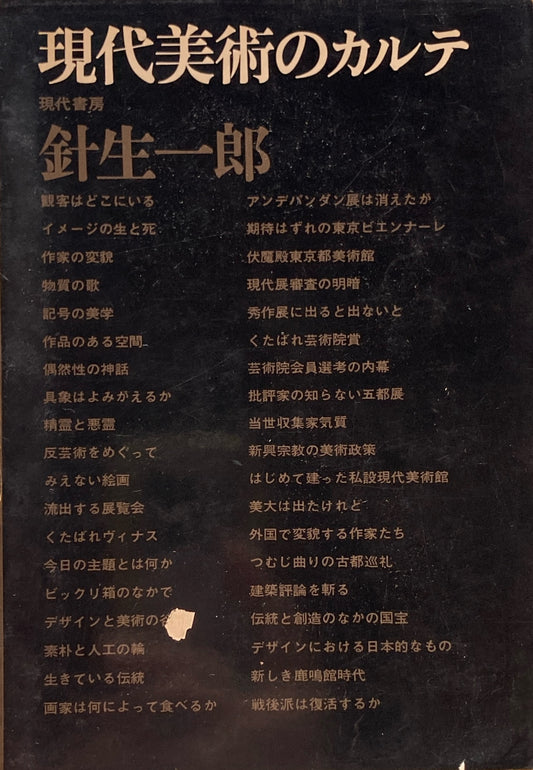 現代美術のカルテ
現代書房
針生一郎
観客はどこにいる
イメージの生と死
作家の変貌
物質の歌
記号の美学
作品のある空間
偶然性の神話
具象はよみがえるか
精霊と悪霊
反芸術をめぐって
みえない絵画
流出する展覧会
くたばれヴィナス
今日の主題とは何か
ビックリ箱のなかで
デザインと美術の
素朴と人工の輪
生きている伝統
画家は何によって食べるか
アンデパンダン展は消えたか
期待はずれの東京ビエンナーレ
伏魔殿東京都美術館
現代展審査の明暗
秀作展に出ると出ないと
くたばれ芸術院賞
芸術院会員選考の内幕
批評家の知らない五都展
当世収集家気質
新興宗教の美術政策
はじめて建った私設現代美術館
美大は出たけれど
外国で変貌する作家たち
つむじ曲りの古都巡礼
建築評論を斬る
伝統と創造のなかの国宝
デザインにおける日本的なもの
新しき鹿鳴館時代
戦後派は復活するか